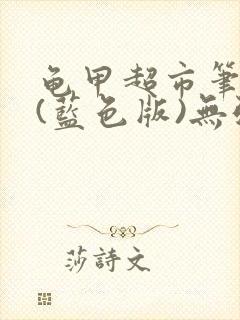 龟甲超市筆
(藍色版)無
莎詩文